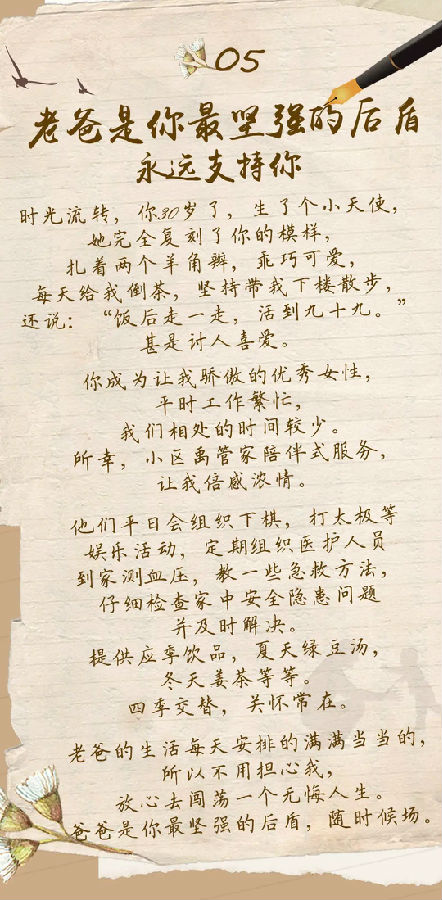 05
老爸是你最坚强的后盾
永远支持你
时光流转，你30岁了，生了个小天使，
她完全复刻了你的模样，
扎着两个羊角辫，乖巧可爱，
每天给我倒茶，坚持带我下楼散步，
还说：“饭后走一走，活到九十九。”
甚是讨人喜爱。
你成为让我骄傲的优秀女性，
平时工作繁忙，
我们相处的时间较少。
所幸，小区禹管家陪伴式服务，
让我倍感浓情。
他们平日会组织下棋，打太极等
娱乐活动，定期组织医护人员
到家测血压，教一些急救方法，
仔细检查家中安全隐患问题
并及时解决。
提供应季饮品，夏天绿豆汤，
冬天姜茶等等。
四季交替，关怀常在。
老爸的生活每天安排的满满当当的，
所以不用担心我，
放心去闯荡一个无悔人生。
爸爸是你最坚强的后盾，随时候场。